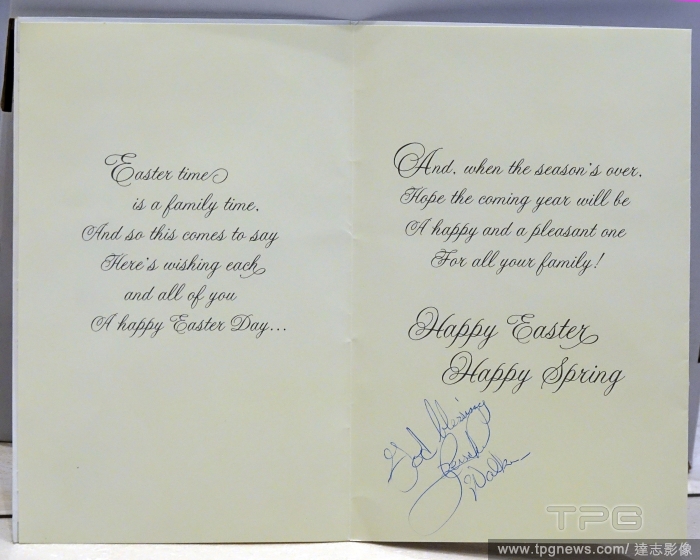 Easter time
is a family time,
And so this comes to say
Here's wishing each
and all of you
A happy Easter Day...
And, when the season's over,
Hope the coming year will be
A happy and a pleasant one
For all your family!
Happy Easter
Happy Spring
God blessing
Walker
TPG
www.tpgnews.com/ 達志影像